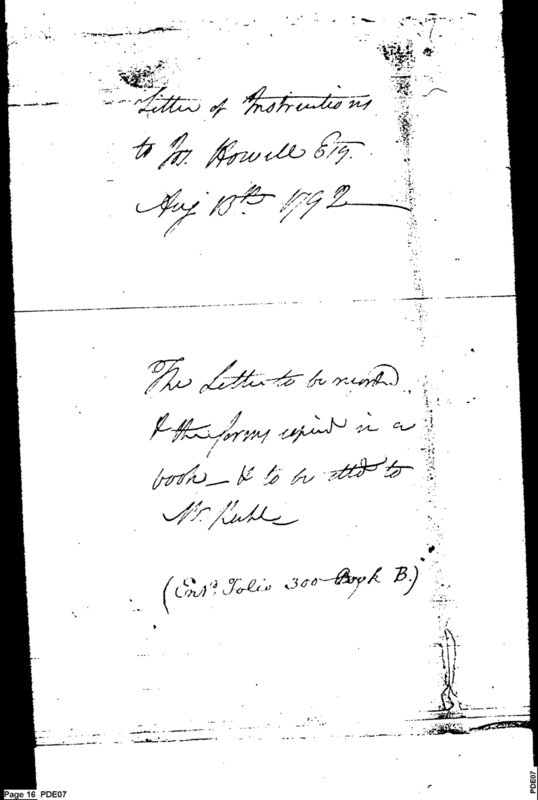 Letter of Instructions
to Jos. Howell Esq.
Aug 13th. 1792
The Letter to be record
& the forms copied in a
book – & to be to
Mr.
(Entd. Folio 300 Book B.)
Page 16 PDE07
PDE07